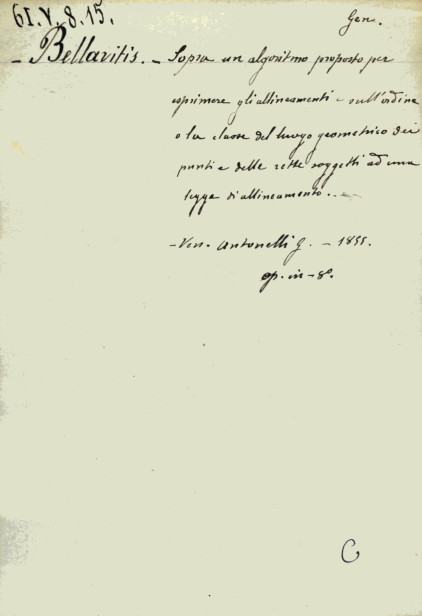 61.V.8.15.
Gen.
- Bellavitis. - Sopra un algoritmo proposto per
esprimere gli allineamenti e sull'ordine
o la classe del luogo geometrico dei
punti e delle rette soggetti ad una
legge di allineamento. -
- Ven. Antonelli G. - 1855.
op. in-8°.
C